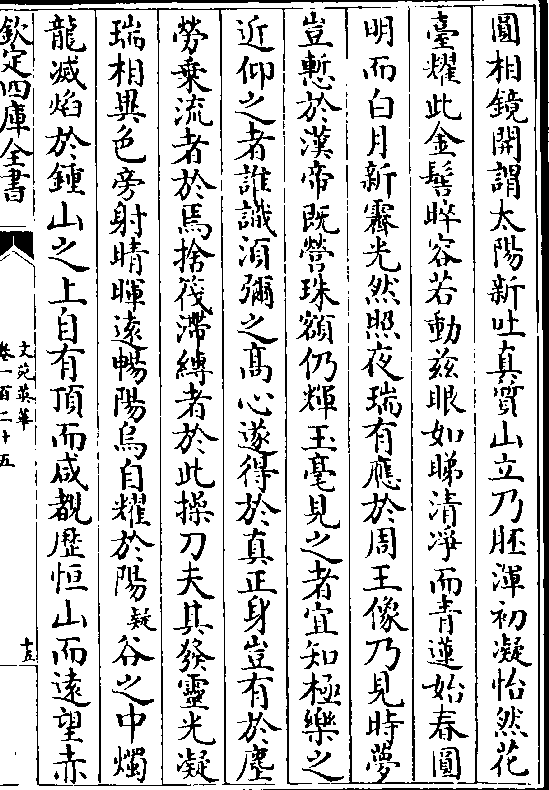 圓相鏡開謂太陽新吐真質山立乃胚渾初凝怡然花
臺耀此金髻晬容若動兹眼如睇清凈而青蓮始春圓
明而白月新霽光然照夜瑞有應於周王像乃見時夢
豈慙於漢帝既營珠額仍輝玉毫見之者宜知極樂之
近仰之者誰譏湏彌之髙心遂得於真正身豈有於塵
勞乗流者於焉捨筏滯縛者於此操刀夫其發靈光凝
瑞相異色旁射晴暉遠暢陽烏自耀於陽凝谷之中燭
龍滅焰於鍾山之上自有頂而咸覩歴恒山而逺望赤
欽定四庫全書
文苑英華
卷一百二十五
十五